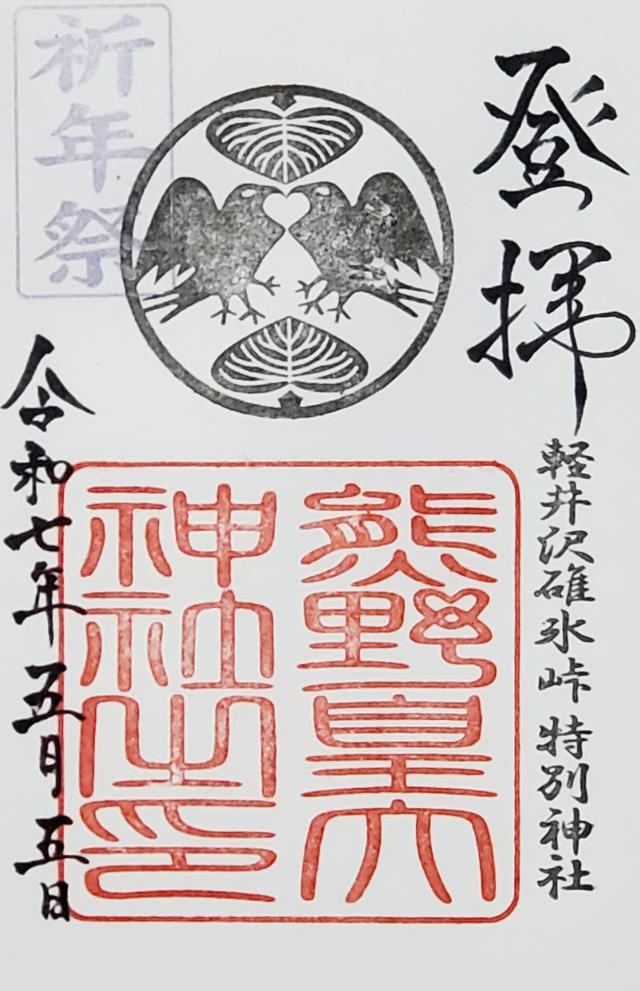 登拝
軽井沢碓氷峠 特別神社
熊野皇大
神社之印
祈年祭
令和七年五月五日